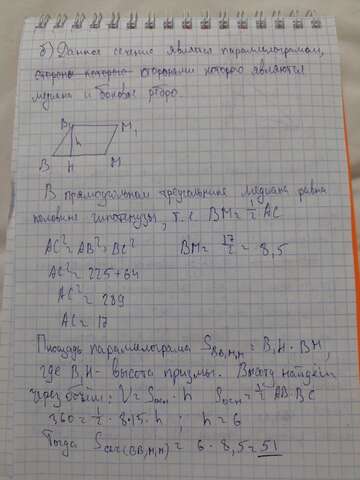 б) Данное сечение является параллелограмом,
стороны которого сторонами которого являются
медиана и боковое ребро.
B₁ M₁
h
B H M
В прямоугольном треугольнике медиана равна
половине гипотенузы, т.е. BM = 1/2 AC
AC² = AB² + BC² BM = 17/2 = 8,5
AC² = 225 + 64
AC² = 289
AC = 17
Площадь параллелограма S BB₁M₁M = B₁H · BM,
где B₁H - высота призмы. Высоту найдём
через объём: V = Sосн · h Sосн = 1/2 AB · BC
360 = 1/2 · 8 · 15 · h ; h = 6
Тогда Sсеч(BB₁M₁M) = 6 · 8,5 = 51